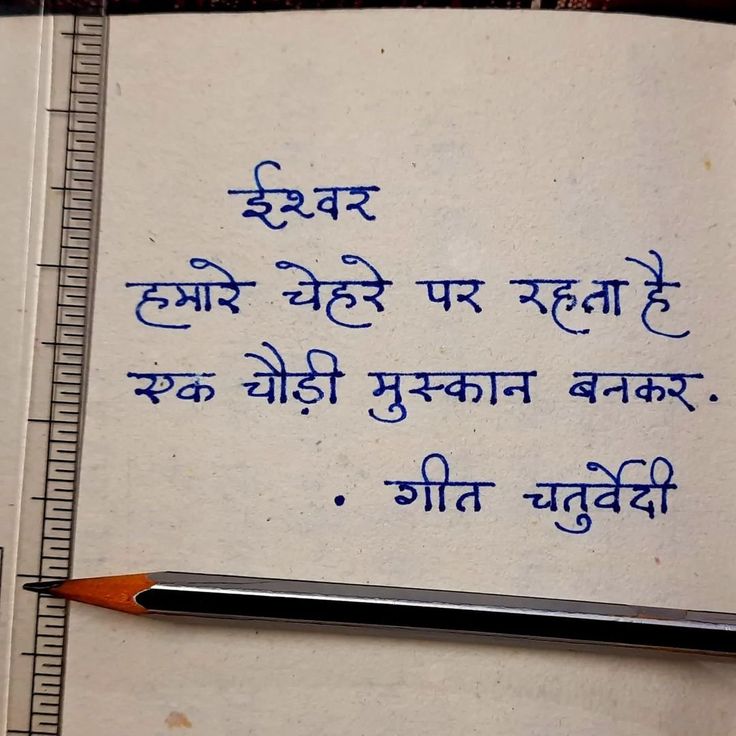 ईश्वर
हमारे चेहरे पर रहता है
एक चौड़ी मुस्कान बनकर.
. गीत चतुर्वेदी